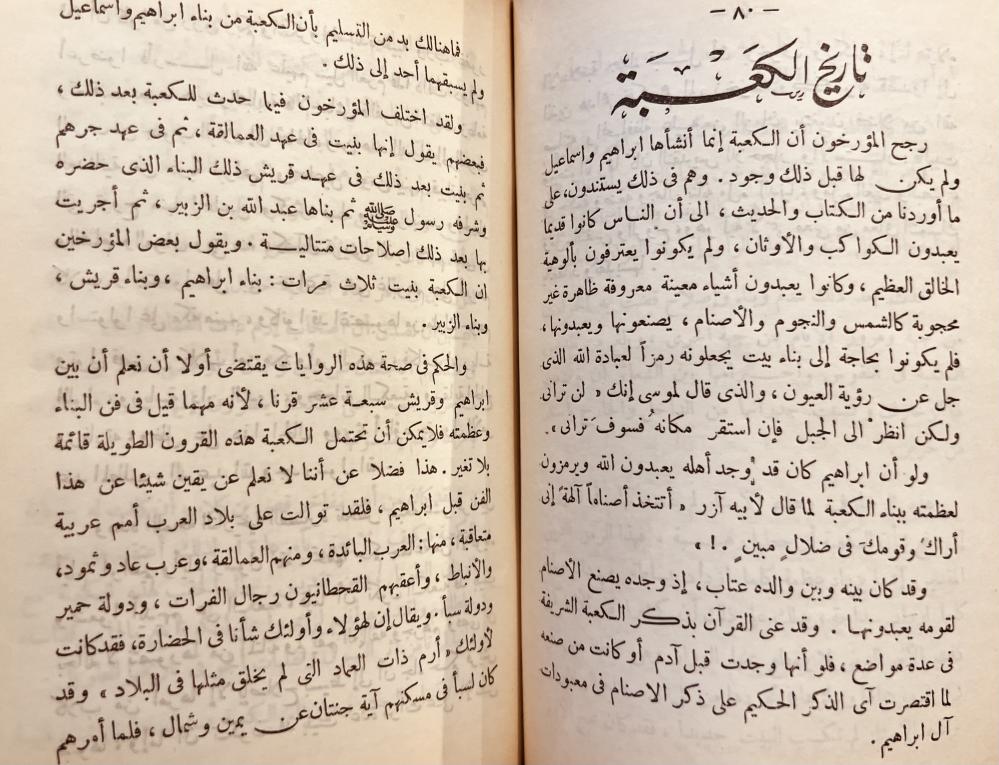 - ٨٠ -
تاريخ الكعبة
رجح المؤرخون أن الكعبة إنما أنشأها ابراهيم واسماعيل
ولم يكن لها قبل ذلك وجود . وهم فى ذلك يستندون، على
ما أوردنا من الكتاب والحديث، الى أن الناس كانوا قديما
يعبدون الكواكب والأوثان ، ولم يكونوا يعترفون بألوهية
الخالق العظيم ، وكانوا يعبدون أشياء معينة معروفة ظاهرة غير
محجوبة كالشمس والنجوم والأصنام ، يصنعونها ويعبدونها،
فلم يكونوا بحاجة إلى بناء بيت يجعلونه رمزاً لعبادة الله الذى
جل عن رؤية العيون ، والذى قال لموسى إنك « لن ترانى
ولكن انظر الى الجبل فإن استقر مكانه ُفسوف َترانى ».
ولو أن ابراهيم كان قد وجد أهله يعبدون الله ويرمزون
لعظمته ببناء الكعبة لما قال لأبيه آزر « أتتخذ أصناماً آلهة ً إنى
أراك َ وقومك َ فى ضلالٍ مبينٍ . ! »
وقد كان بينه وبين والده عتاب ، إذ وجده يصنع الأصنام
لقومه يعبدونها . وقد عنى القرآن بذكر الكعبة الشريفة
فى عدة مواضع ، فلو أنها وجدت قبل آدم أو كانت من صنعه
لما اقتصرت آى الذكر الحكيم على ذكر الاصنام فى معبودات
آل ابراهيم .
فما هنالك بد من التسليم بأن الكعبة من بناء ابراهيم واسماعيل
ولم يسبقهما أحد إلى ذلك .
ولقد اختلف المؤرخون فيما حدث للكعبة بعد ذلك ،
فبعضهم يقول إنها بنيت فى عهد العمالقة ، ثم فى عهد جرهم
ثم بنيت بعد ذلك فى عهد قريش ذلك البناء الذى حضره
وشرفه رسول ﷺ ثم بناها عبد الله بن الزبير ، ثم أجريت
بها بعد ذلك اصلاحات متتالية . ويقول بعض المؤرخين
ان الكعبة بنيت ثلاث مرات : بناء ابراهيم ، وبناء قريش ،
وبناء الزبير .
والحكم فى صحة هذه الروايات يقتضى أولا أن نعلم أن بين
ابراهيم وقريش سبعة عشر قرنا ، لأنه مهما قيل فى فن البناء
وعظمته فلا يمكن أن تحتمل الكعبة هذه القرون الطويلة قائمة
بلا تغير . هذا فضلا عن أننا لا نعلم عن يقين شيئا عن هذا
الفن قبل ابراهيم ، فلقد توالت على بلاد العرب أمم عربية
متعاقبة ، منها : العرب البائدة ، ومنهم العمالقة ، وعرب عاد وثمود،
والأنباط ، وأعقبهم القحطانيون رجال الفرات ، ودولة حمير
ودولة سبأ . ويقال إن لهؤلاء وأولئك شأنا فى الحضارة، فقد كانت
لأولئك « أرم ذات العماد التى لم يخلق مثلها فى البلاد » وقد
كان لسبأ فى مسكنهم آية جنتان عن يمين وشمال ، فلما أمرهم